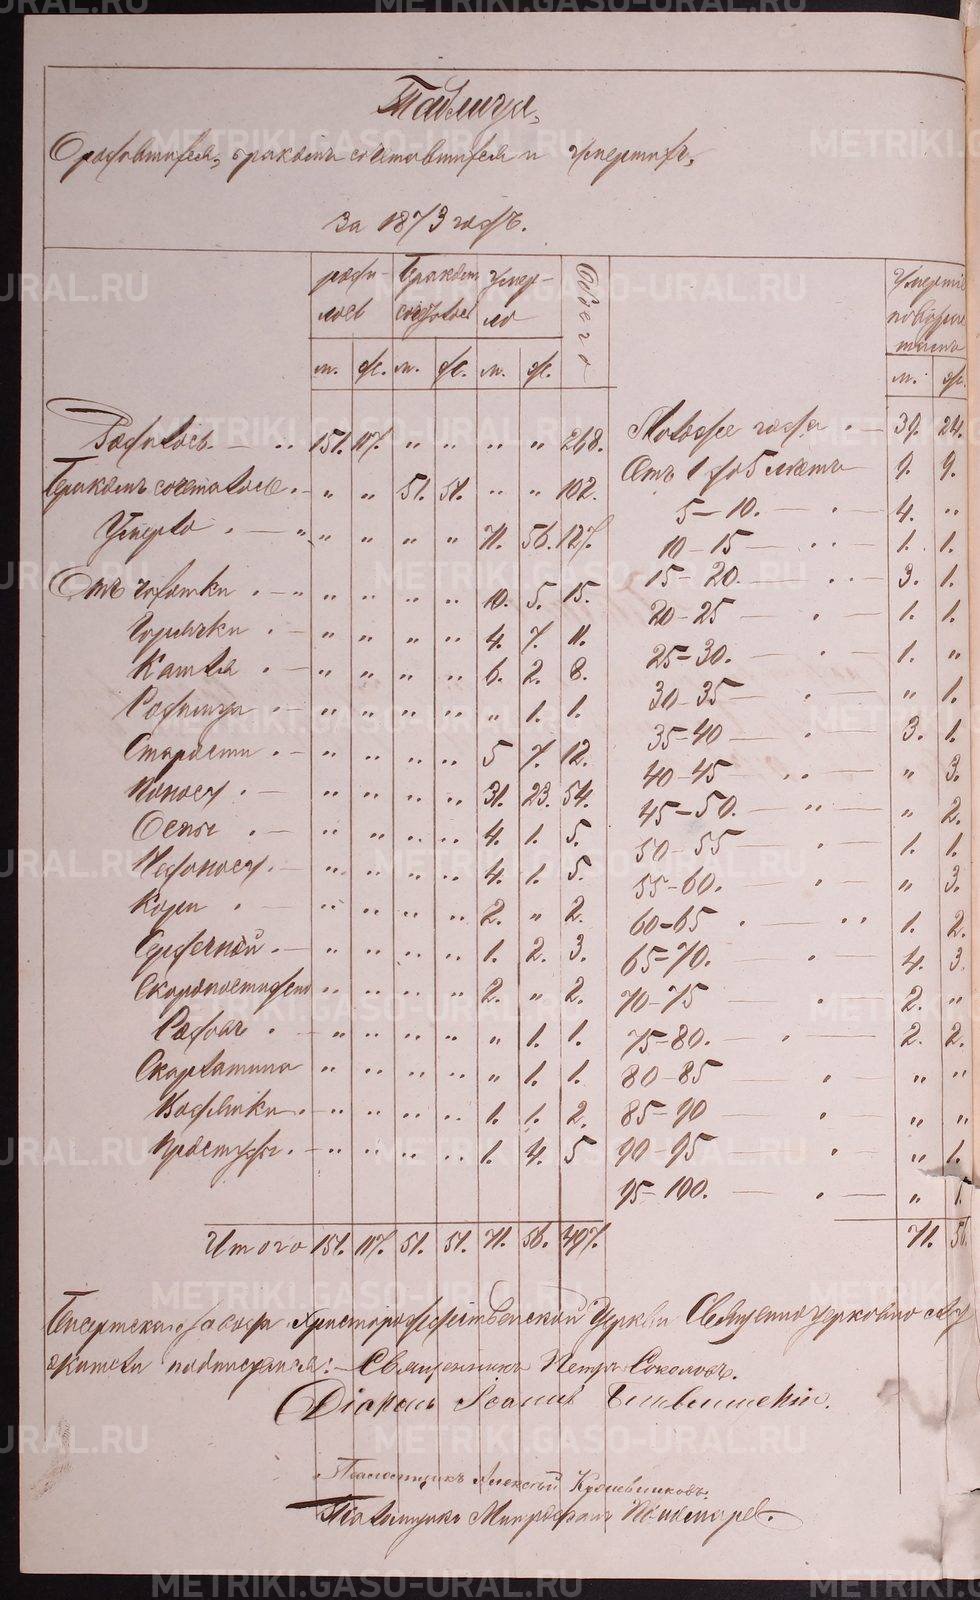 Таблица,
О родившихся, бракомъ сочетавшихся и умершихъ,
за 1873 годъ.
роди- Бракомъ Умер- Всего Умершіе
лось сочеталось ло по возра-
стамъ
м. ж. м. ж. м. ж. м. ж.
Родилось 151. 117. " " " " 268. Моложе года 39. 24.
Бракомъ сочеталось " " 51. 51. " " 102. Отъ 1 до 5 лѣтъ 9. 9.
Умерло " " " " 71. 56. 127. 5–10. 4. "
10–15 1. 1.
Отъ чахотки " " " " 10. 5. 15. 15–20. 3. 1.
Горячки " " " " 4. 7. 11. 20–25 1. 1.
Кашля " " " " 6. 2. 8. 25–30. 1. "
Родимца " " " " " 1. 1. 30–35 " 1.
Старости " " " " 5 7. 12. 35–40 3. 1.
Поноса " " " " 31. 23. 54. 40–45 " 3.
45–50. " 2.
Оспы " " " " 4. 1. 5. 50–55 1. 1.
" " " " 4. 1. 5. 55–60. " 3.
Кори " " " " 2. " 2. 60–65 1. 2.
" " " " 1. 2. 3. 65–70. 4. 3
Скоропостижно " " " " 2. " 2. 70–75 2. "
Родовъ " " " " " 1. 1. 75–80. 2. 2.
Скарлатина " " " " " 1. 1. 80–85 " "
Водянки " " " " 1. 1. 2. 85–90 " "
Простуды " " " " 1. 4. 5 90–95 " 1.
95–100. " 1.
Итого 151. 117. 51. 51. 71. 56. 497. 71. 56.
завода Христорождественской Церкви Священно церковно слу
жители подписуемся: Священникъ Петръ Соколовъ.
Діаконъ Іоаннъ
Псаломщикъ Алексѣй
Псаломщикъ Митрофанъ Пономаревъ.
METRIKI.GASO-URAL.RU